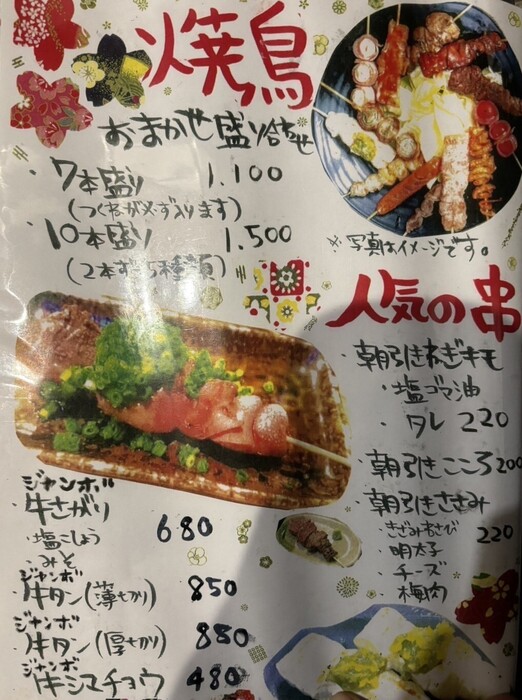 焼鳥
おまかせ盛り合わせ
・7本盛り 1.100
(つくねが必ず入ります)
・10本盛り 1.500
(2本ずつ5種類)
※写真はイメージです。
人気の串
・朝引きねぎキモ
・塩ゴマ油
・タレ 220
・朝引きこころ 200
・朝引きささみ
・きざみわさび 220
・明太子
・チーズ
・梅肉
ジャンボ
・牛さがり 680
・塩こしょう
・みそ
ジャンボ
・牛タン(薄切り) 850
ジャンボ
・牛タン(厚切り) 880
ジャンボ
・牛シマチョウ 480